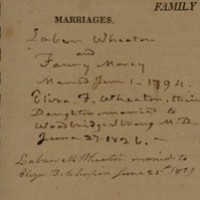 FAMILY
MARRIAGES.
Laban Wheaton
and
Fanny Morey
Married Jun 1. 1794.
Eliza. F. Wheaton, their
Daughter married to
Woodbridge Strong M.D.
June 27. 1826.
Laban M Wheaton married to
Eliza B. Chapin June 25th 1829